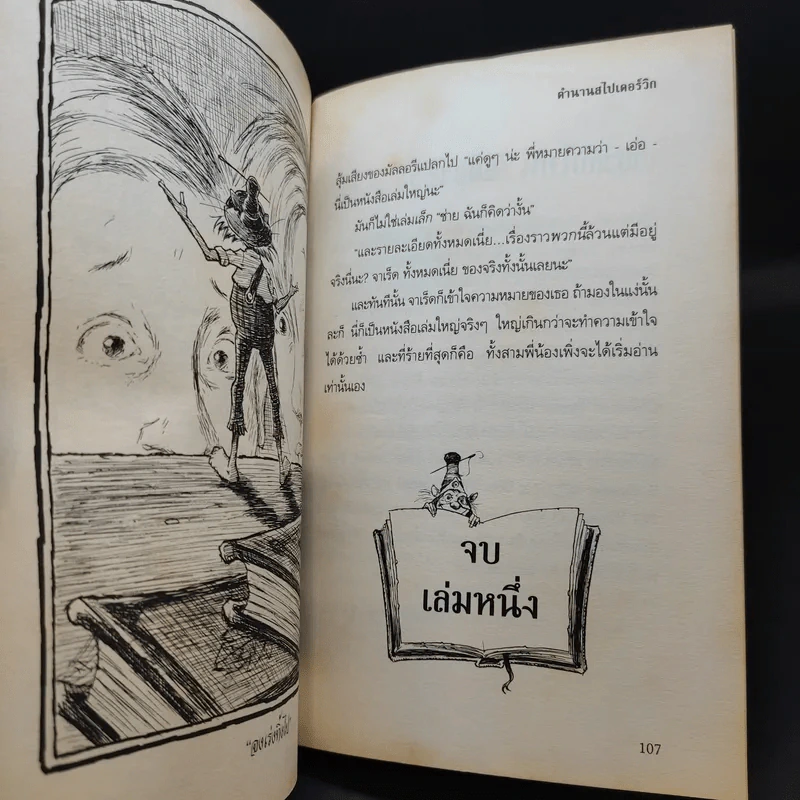 "เอาเร่งทิ้งไป"
ตำนานสไปเดอร์วิก
สุ้มเสียงของมัลลอรีแปลกไป "แค่ดูๆ น่ะ พี่หมายความว่า - เอ่อ -
นี่เป็นหนังสือเล่มใหญ่นะ"
มันก็ไม่ใช่เล่มเล็ก "ใช่ ฉันก็คิดว่างั้น"
"และรายละเอียดทั้งหมดเนี่ย...เรื่องราวพวกนี้ล้วนแต่มีอยู่
จริงนี่นะ? จาเร็ด ทั้งหมดเนี่ย ของจริงทั้งนั้นเลยนะ"
และทันทีนั้น จาเร็ดก็เข้าใจความหมายของเธอ ถ้ามองในแง่นั้น
ละก็ นี่ก็เป็นหนังสือเล่มใหญ่จริงๆ ใหญ่เกินกว่าจะทำความเข้าใจ
ได้ด้วยซ้ำ และที่ร้ายที่สุดก็คือ ทั้งสามพี่น้องเพิ่งจะได้เริ่มอ่าน
เท่านั้นเอง
จบ
เล่มหนึ่ง
107